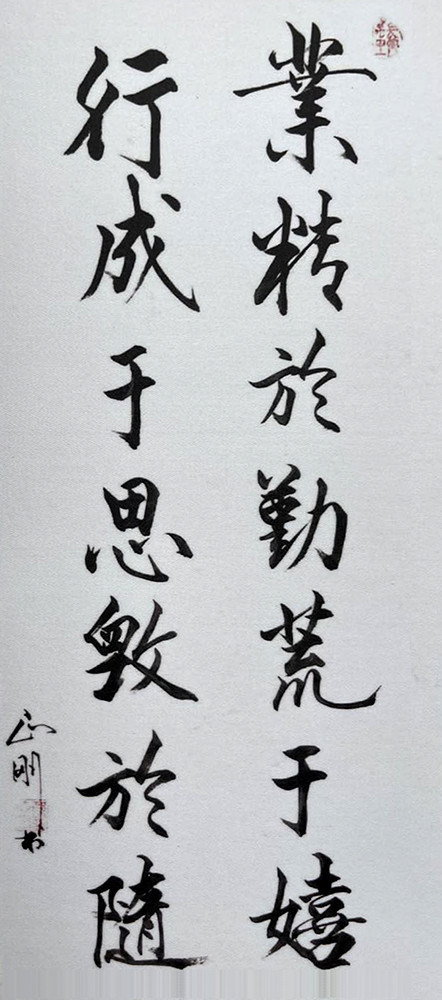 業精於勤荒于嬉
行成于思毀於隨
正剛书